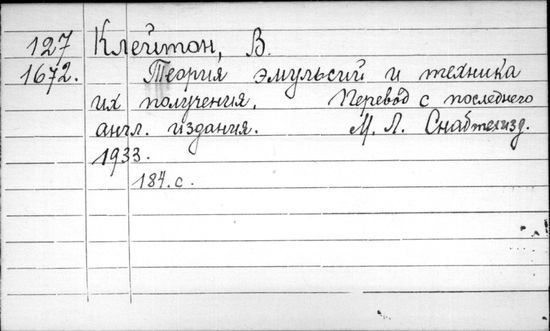 127 Клейтон, В.
1672. Теория эмульсий и техника
их получения. Перевод с последнего
англ. издания. М. Л. Снабтехизд.
1933.
184. с.